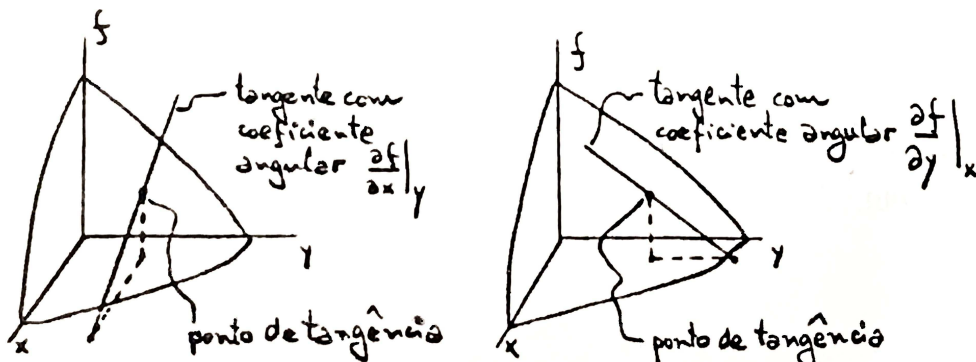 f
tangente com
coeficiente
angular ∂f/∂x|y
y
x
ponto de tangência
f
tangente com
coeficiente angular ∂f/∂y|x
y
x
ponto de tangência